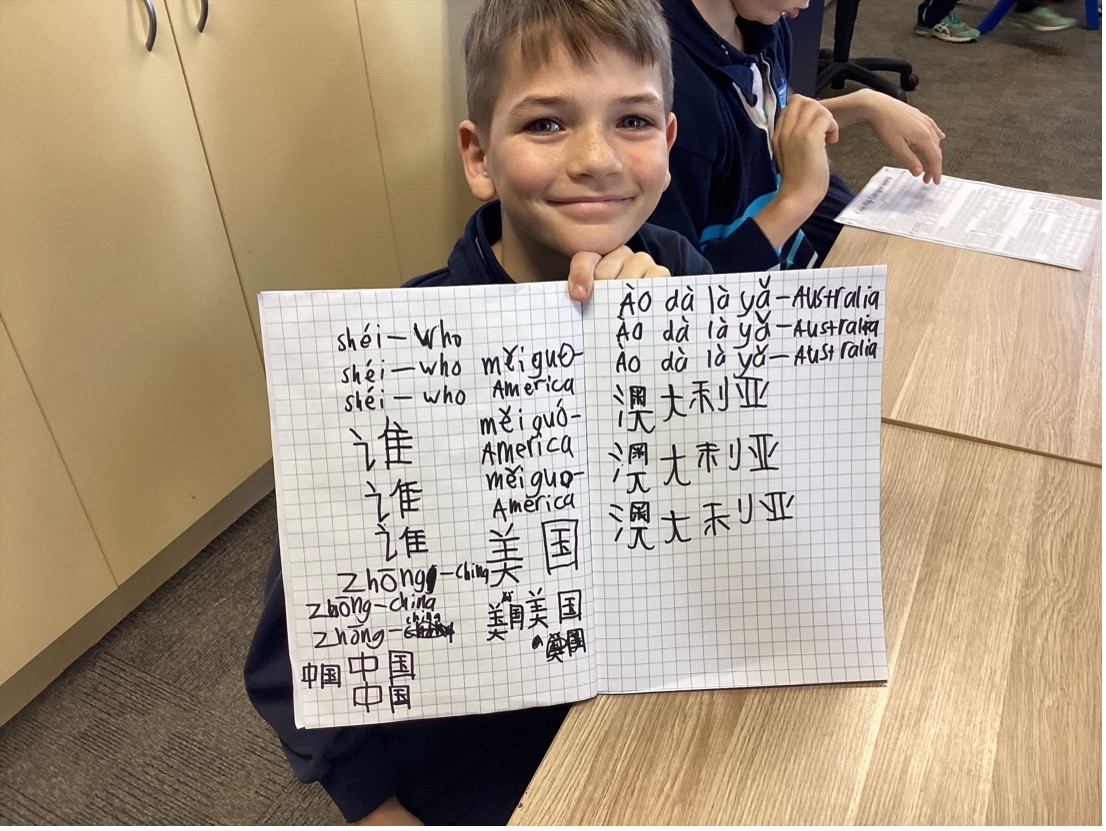 shéi – Who
shéi – who
shéi – who
谁
谁
谁
zhōng – china
zhōng – china
zhōng – china
中国 中国
中国
měi guo –
America
měi guó –
America
měi guo –
America
美国
美国 美国
Ào dà là yǎ – Australia
Ào dà là yǎ – Australia
Ào dà là yǎ – Australia
澳大利亚
澳大利亚
澳大利亚